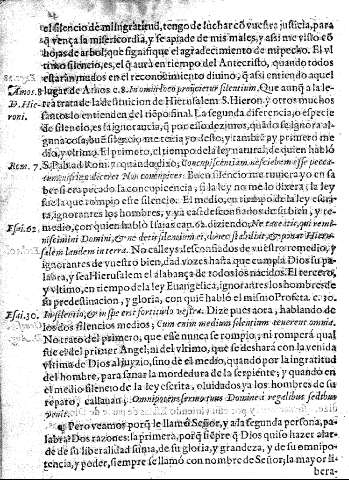 el silencio de mi ingratitud, tengo de luchar cõ vuestra justicia, para
q̃ vença la misericordia, y se apiade de mis males, y assi me visto cõ
hojas de arbol, que signifique el agradecimiento de mi pecho. El vl
timo silencio, es, el q̃ aurà en tiempo del Antecristo, quando todos
estaràn mudos en el reconocimiento diuino, q̃ assi entiendo aquel
Amos. 8. lugar de Amos c. 8. In omni loco proijcietur silentium, Que aunq̃ a la le-
D. Hie- tra trata de la destruicion de Hierusalem S. Hieron. y otros muchos
roni. santos lo entienden del tiẽpo final. La segunda diferencia, o especie
de silencio, es la ignorancia, q̃ por esso dezimos, quãdo se ignora al-
guna cosa,
Rom. 7. S. Pablo ad Rom. 7. quando dixo; Concupiscentiam nesciebam esse pecca-
tum, nisi lex diceret Non concupisces. Buen silencio me tuuiera yo en sa
ber si era pecado la concupicencia, si la ley no me lo dixera; la ley
fue la que rompio esse silencio. El medio, en tiempo de la ley escri-
ta, ignorantes los hombres, y ya casi desconfiados de su bien, y re-
Esai. 62. medio, con quien hablò Isaias cap. 62. diziendo; Ne taceatis, qui remi-
niscimini Domini, & ne detis silentium ei, donec stabiliat, & ponat Hierusa-
lem laudem in terra. No calleys desconfiados de vuestro remedio, y
ignorantes de vuestro bien, dad vozes hasta que cumpla Dios su pa-
labra, y sea Hierusalem el alabança de todos los nacidos. El tercero,
y vltimo, en tiempo de la ley Euangelica, ignorantes los hombres de
su predestinacion, y gloria, con quiẽ hablò el mismo Profeta. c. 30.
Esai. 30. In silentio, & in spe erit fortitudo vestra. Dize pues aora, hablando de
los dos silencios medios; Cum enim medium silentium tenerent omnia.
No trato del primero, que esse nunca se rompio, ni romperà qual
fue el del primer Angel; ni del vltimo, que se desharà con la venida
vltima de Dios al juyzio, sino de el medio, quando por la ingratitud
del hombre, para sanar la mordedura de la serpiente; y quando en
el medio silencio de la ley escrita, oluidados ya los hombres de su
reparo, callauan; Omnipotens sermo tuus Domine à regalibus sedibus
venit.
Pero veamos porq̃ le llamò Señor, y a la segunda persona, pa-
labra? Dos razones; la primera, porq̃ siẽpre q̃ Dios quiso hazer alar-
de de su liberalidad suma, de su gloria, y grandeza, y de su omnipo-
tencia, y poder, siempre se llamò con nombre de Señor; la mayor li
bera-